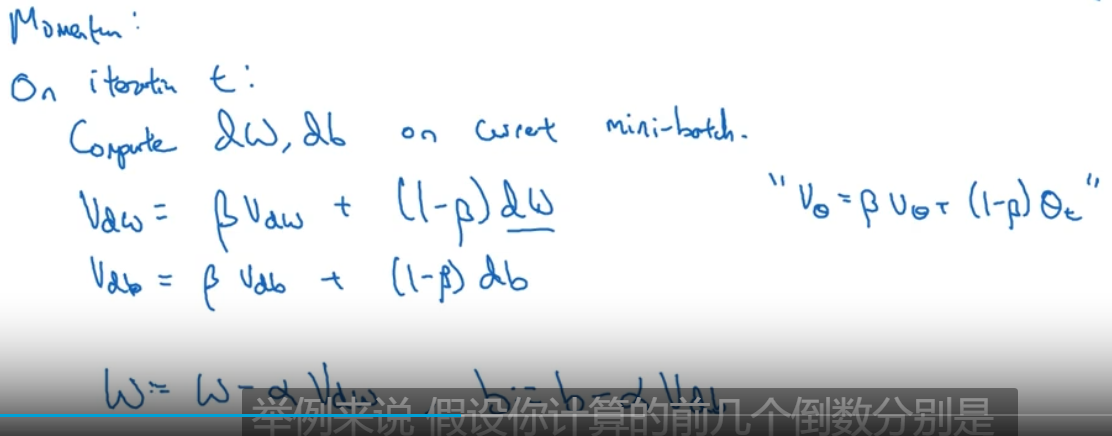 Momentum:
On iteration t:
Compute dW, db on current mini-batch.
Vdw = βVdw + (1-β)dW
"Vθ = βVθ + (1-β)θt"
Vdb = βVdb + (1-β)db
W := W - αVdw, b := b - αVdb
举例来说 假设你计算的前几个倒数分别是